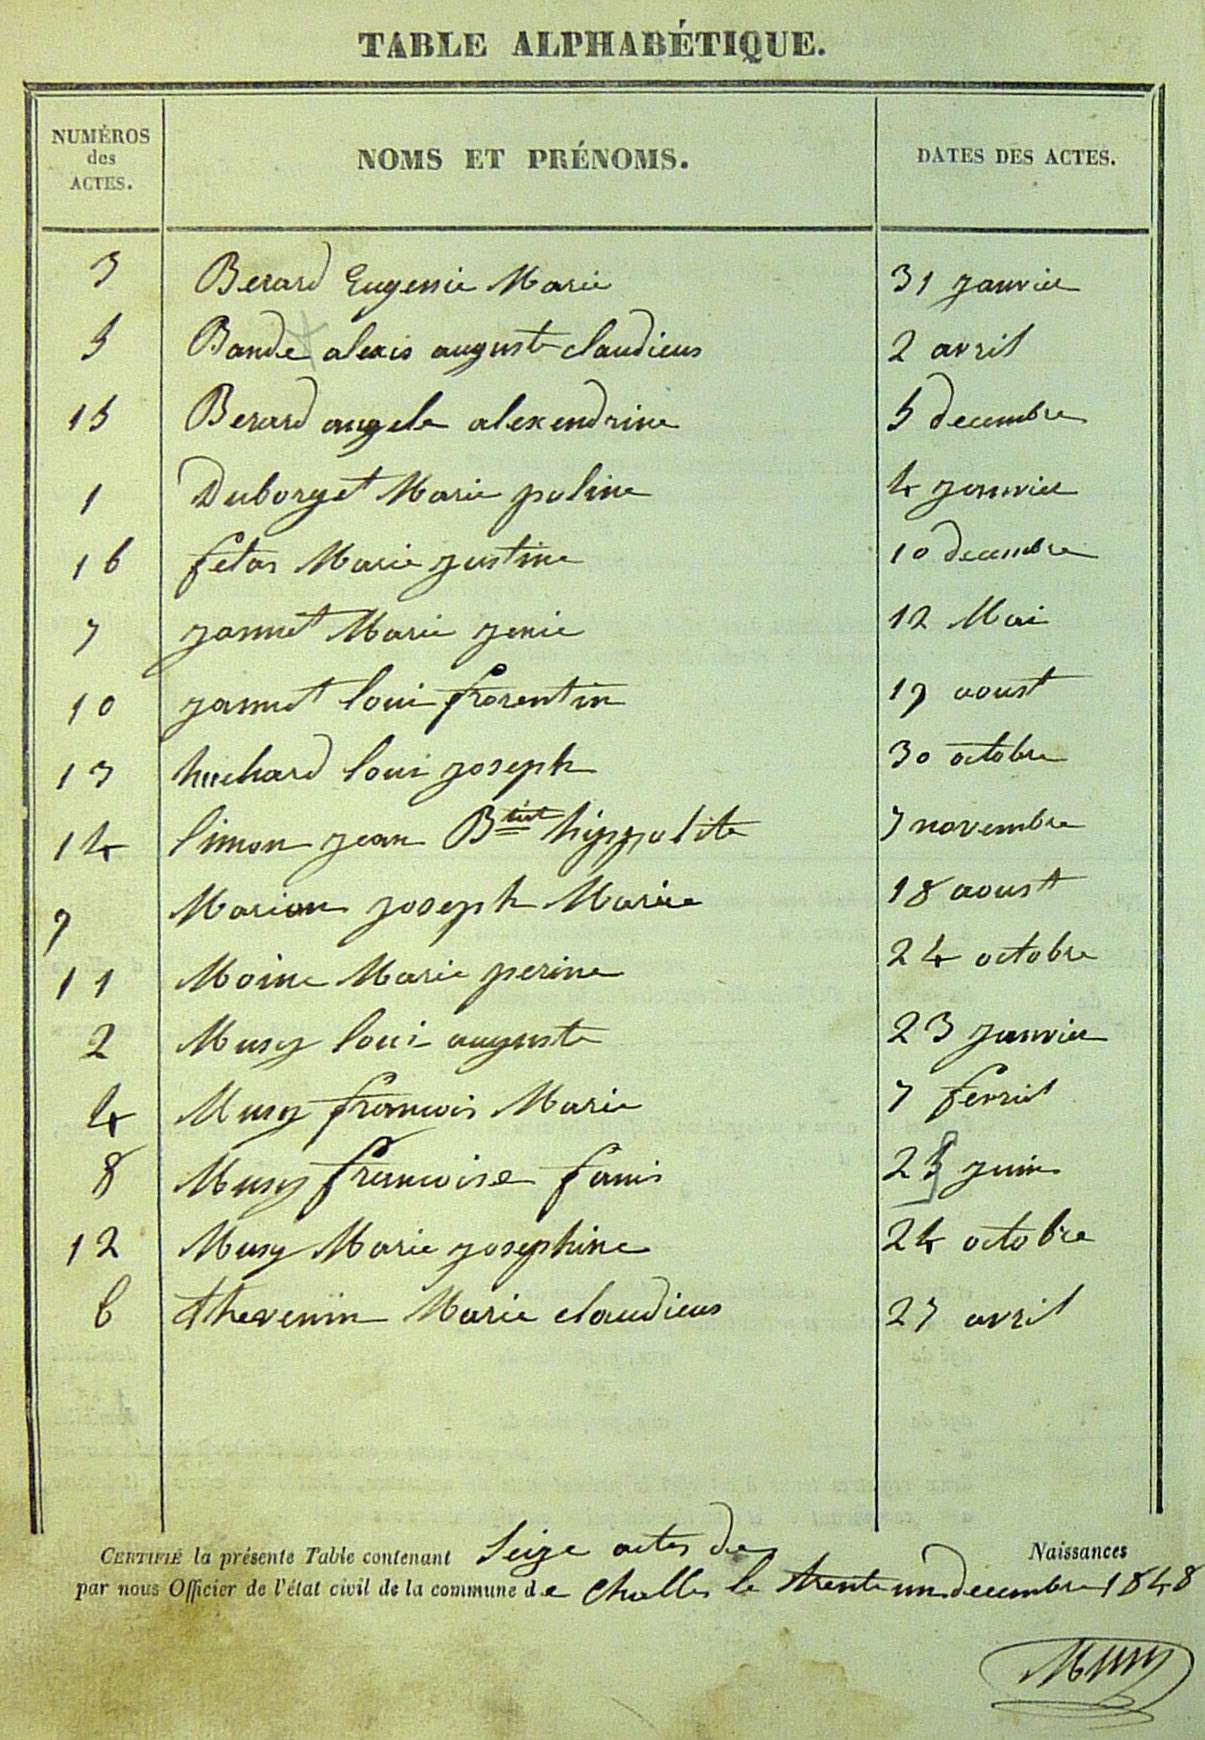 TABLE ALPHABÉTIQUE.
NUMÉROS des ACTES. NOMS ET PRÉNOMS. DATES DES ACTES.
3 Berard Eugenie Marie 31 janvier
5 Bande alexis auguste claudieus 2 avril
15 Berard angele alexendrine 5 decembre
1 Duborget Marie poline 4 janvier
16 fetas Marie justine 10 decembre
7 jannet Marie jenie 12 Mai
10 jannet loui florentin 19 aoust
13 huchard loui joseph 30 octobre
14 limon jean Btist hippolite 7 novembre
9 Marion joseph Marie 18 aoust
11 Moine Marie perine 24 octobre
2 Musy loui auguste 23 janvier
4 Musy francois Marie 7 fevriet
8 Musy francoise fanis 25 juin
12 Musy Marie josephine 24 octobre
6 thevenin Marie claudieus 27 avril
CERTIFIÉ la présente Table contenant Seize actes de Naissances
par nous Officier de l'état civil de la commune de Challes le trente un decembre 1848
Musy